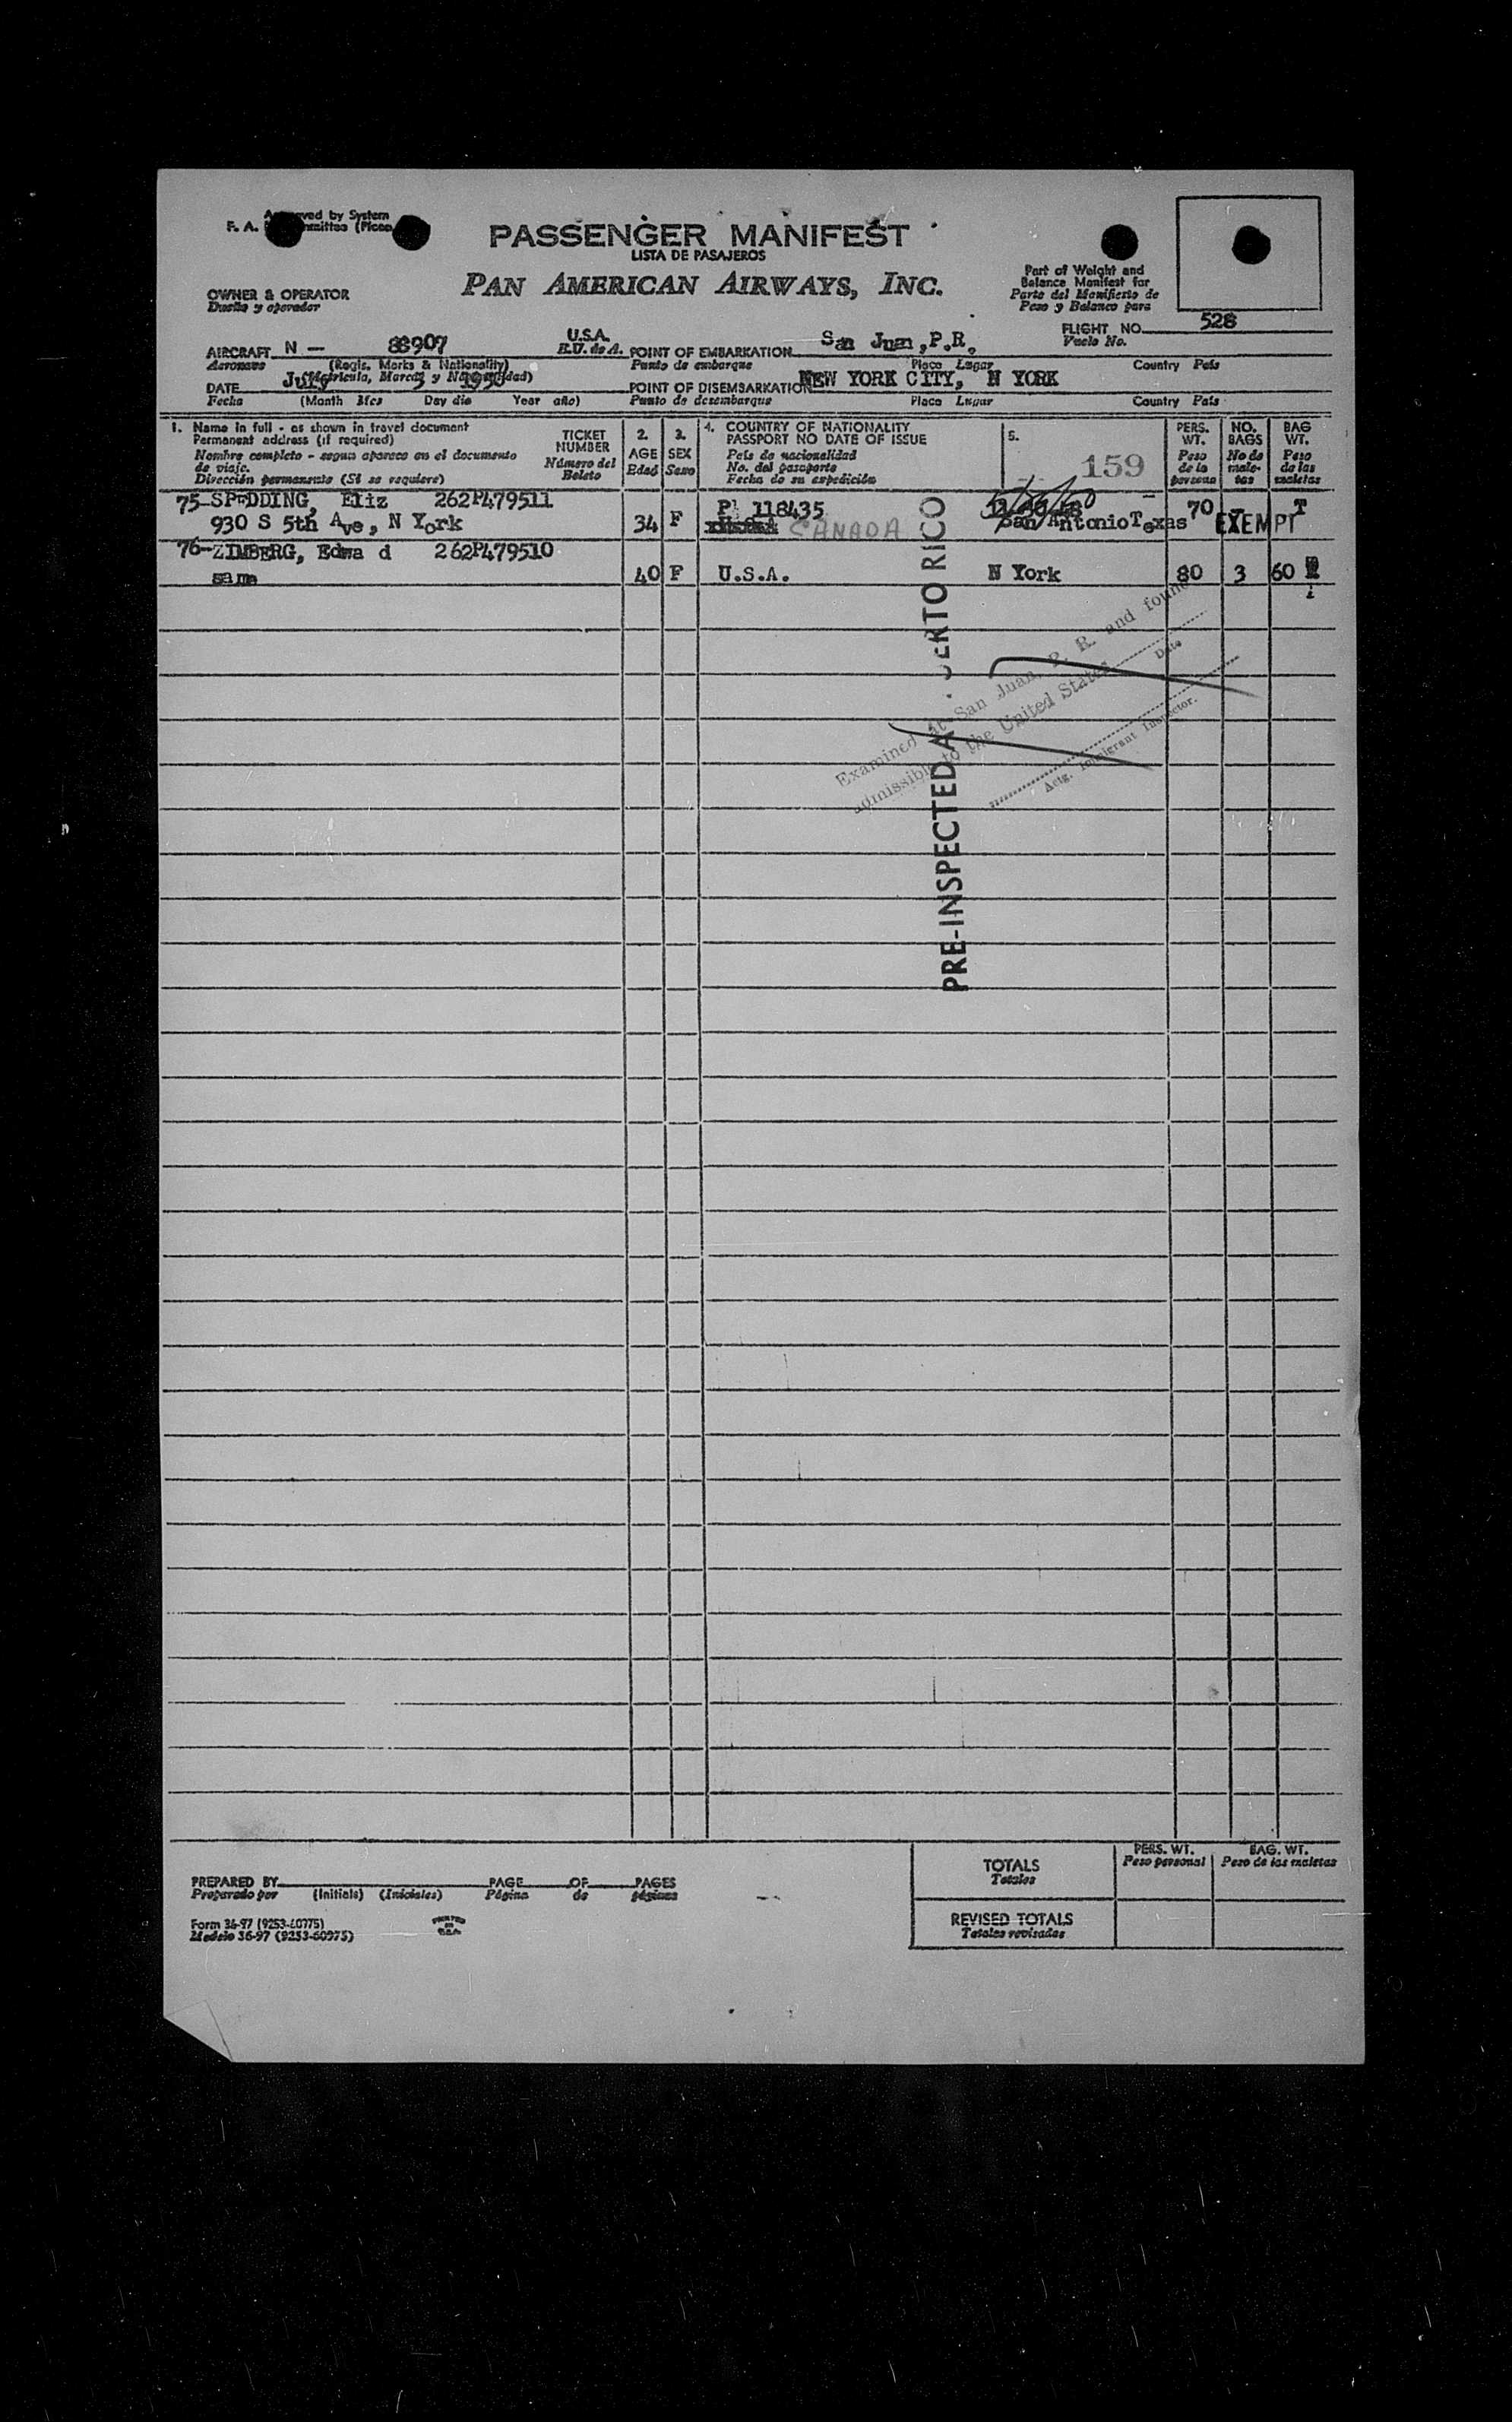 PASSENGER MANIFEST
LISTA DE PASAJEROS
PAN AMERICAN AIRWAYS, INC.
OWNER & OPERATOR
Dueño y operador
Part of Weight and
Balance Manifest for
Parte del Manifiesto de
Peso y Balance para
FLIGHT NO. 528
Vuelo No.
AIRCRAFT N — 88907 U.S.A. POINT OF EMBARKATION San Juan, P.R.
Aeronave (Regis. Marks & Nationality) E.U. de A. Punto de embarque Place Lugar Country País
DATE July POINT OF DISEMBARKATION NEW YORK CITY, N YORK
Fecha (Month Mes Day día Year año) Punto de desembarque Place Lugar Country País
1. Name in full - as shown in travel document
Permanent address (if required)
Nombre completo - segun aparece en el documento
de viaje.
Dirección permanente (Si se requiere)
TICKET
NUMBER
Número del
Boleto
2.
AGE
Edad
3.
SEX
Sexo
4. COUNTRY OF NATIONALITY
PASSPORT NO DATE OF ISSUE
País de nacionalidad
No. del pasaporte
Fecha de su expedición
5.
159
PERS.
WT.
Peso
de la
persona
NO.
BAGS
No de
male-
tas
BAG
WT.
Peso
de las
maletas
75-SPEDDING, Eliz 262P479511 118435
930 S 5th Ave, N York 34 F CANADA San Antonio Texas 70 EXEMPT
76-ZIMBERG, Edwa d 262P479510
same 40 F U.S.A. N York 80 3 60
PRE-INSPECTED A ERTO RICO
Examined at San Juan, P. R. and found
admissible to the United States
Date
Actg. Immigrant Inspector.
TOTALS
Totales
PERS. WT.
Peso personal
BAG. WT.
Peso de las maletas
REVISED TOTALS
Totales revisados
PREPARED BY PAGE OF PAGES
Preparado por (Initials) (Iniciales) Página de páginas
Form 36-97 (9253-60975)
Modelo 36-97 (9253-60975)
PRINTED
IN
U.S.A.